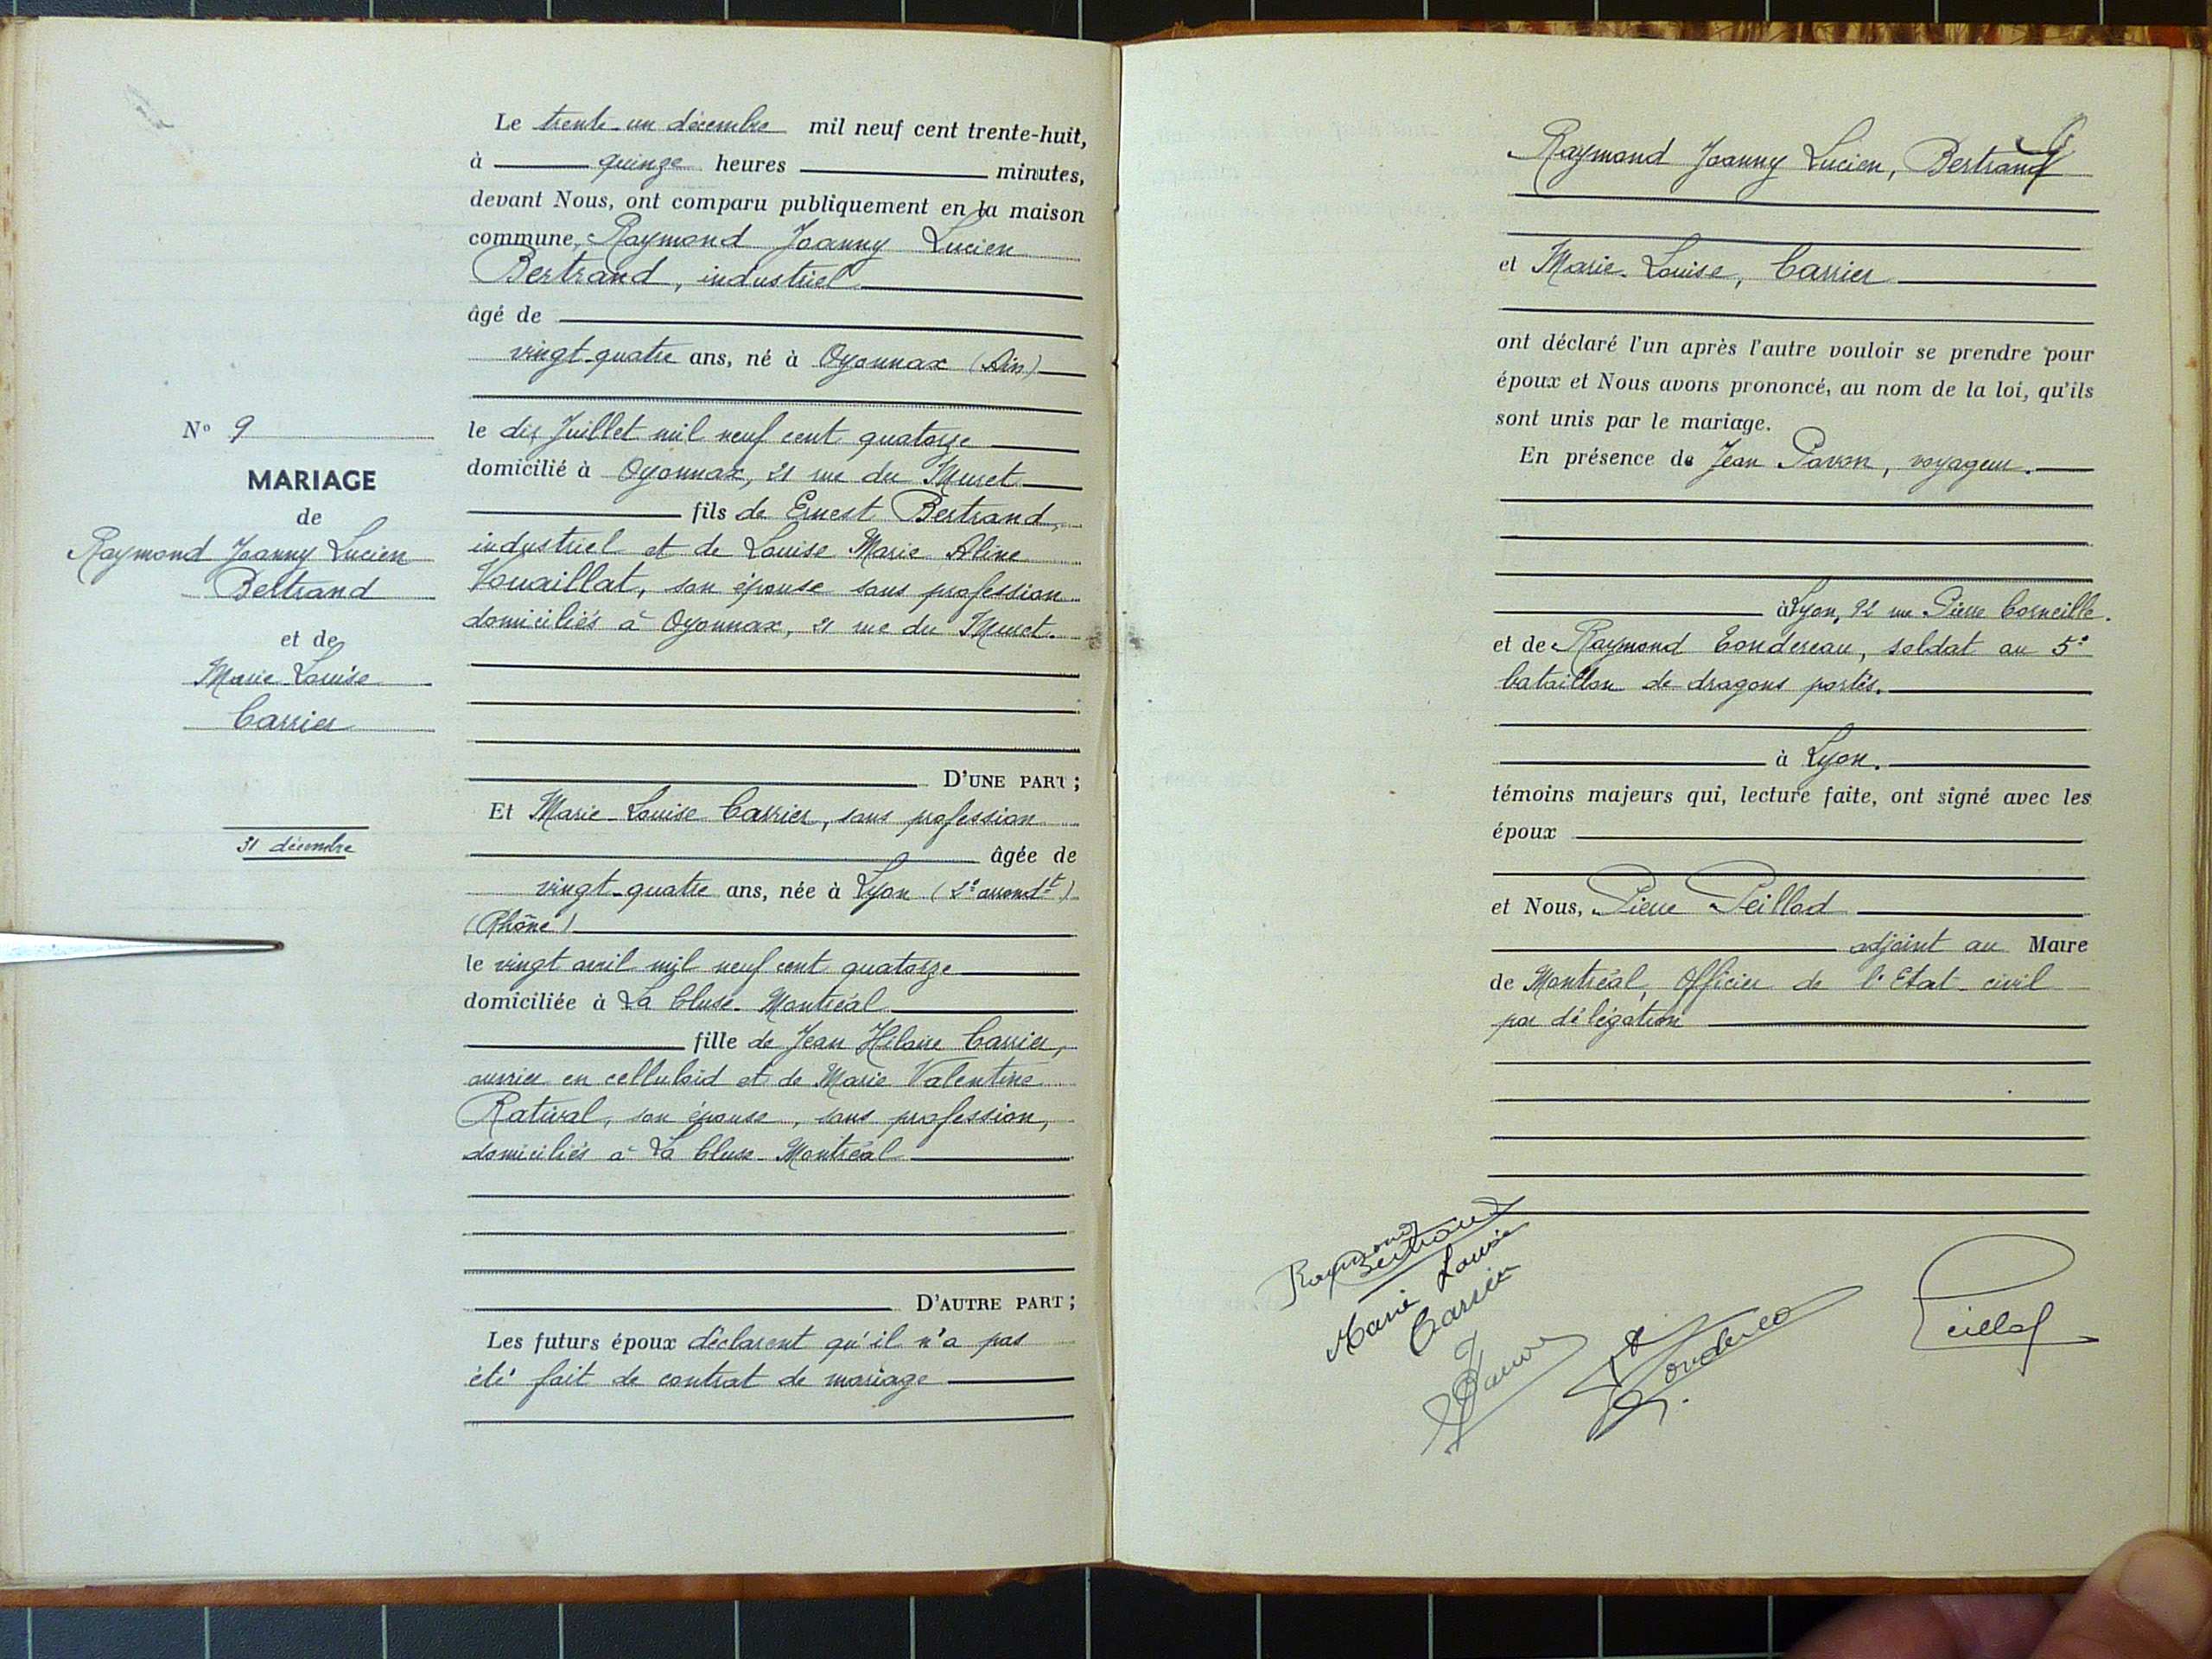 N° 9
MARIAGE
de
Raymond Joanny Lucien
Bertrand
et de
Marie-Louise
Carrier
31 décembre
Le trente-un décembre mil neuf cent trente-huit,
à quinze heures minutes,
devant Nous, ont comparu publiquement en la maison
commune, Raymond Joanny Lucien
Bertrand, industriel
âgé de
vingt-quatre ans, né à Oyonnax (Ain)
le dix Juillet mil neuf cent quatorze
domicilié à Oyonnax, 21 rue du Muret
fils de Ernest Bertrand,
industriel et de Louise Marie Aline
Vouaillat, son épouse sans profession
domiciliés à Oyonnax, 21 rue du Muret.
D'UNE PART ;
Et Marie-Louise Carrier, sans profession
âgée de
vingt-quatre ans, née à Lyon (2e arrondt)
(Rhône)
le vingt avril mil neuf cent quatorze
domiciliée à La Cluse-Montréal
fille de Jean Hilaire Carrier,
ouvrier en celluloïd et de Marie Valentine
Ratival, son épouse, sans profession,
domiciliés à La Cluse-Montréal
D'AUTRE PART ;
Les futurs époux déclarent qu'il n'a pas
été fait de contrat de mariage
Raymond Joanny Lucien, Bertrand
et Marie-Louise, Carrier
ont déclaré l'un après l'autre vouloir se prendre pour
époux et Nous avons prononcé, au nom de la loi, qu'ils
sont unis par le mariage.
En présence de Jean Pavon, voyageur.
à Lyon, 92 rue Pierre Corneille.
et de Raymond Condereau, soldat au 5e
bataillon de dragons portés.
à Lyon.
témoins majeurs qui, lecture faite, ont signé avec les
époux
et Nous, Pierre Peillod
adjoint au Maire
de Montréal, Officier de l'Etat-civil
par délégation
Raymond Bertrand
Marie Louise
Carrier
Peillod